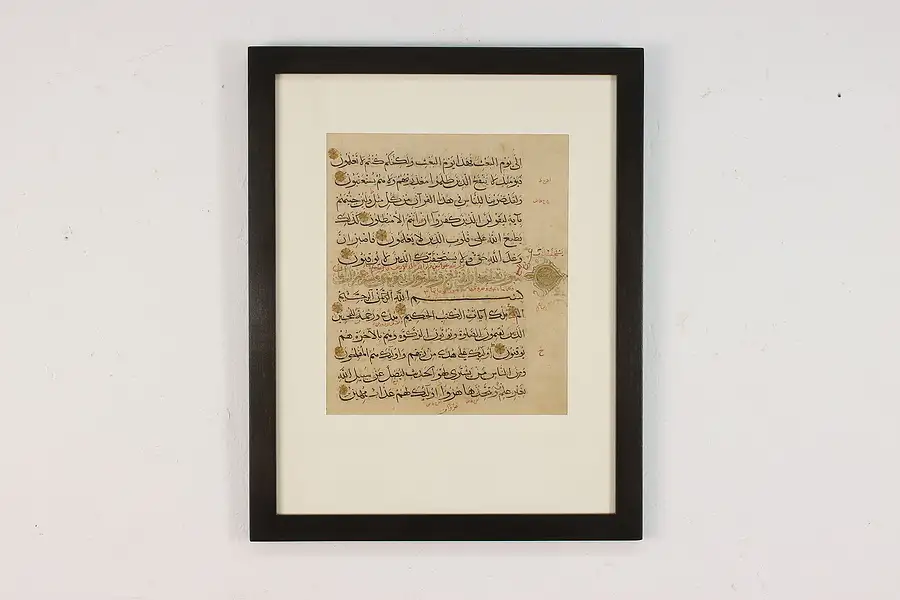 الى يوم البعث فهذا يوم البعث ولكنكم كنتم لا تعلمون
فيومئذ لا ينفع الذين ظلموا معذرتهم ولا هم يستعتبون
ولقد ضربنا للناس في هذا القرآن من كل مثل ولئن جئتهم
بآية ليقولن الذين كفروا ان انتم الا مبطلون كذلك
يطبع الله على قلوب الذين لا يعلمون فاصبر ان
وعد الله حق ولا يستخفنك الذين لا يوقنون
بسم الله الرحمن الرحيم
الم تلك آيات الكتاب الحكيم هدى ورحمة للمحسنين
الذين يقيمون الصلوة ويؤتون الزكوة وهم بالآخرة هم
يوقنون اولئك على هدى من ربهم واولئك هم المفلحون
ومن الناس من يشتري لهو الحديث ليضل عن سبيل الله
بغير علم ويتخذها هزوا اولئك لهم عذاب مهين